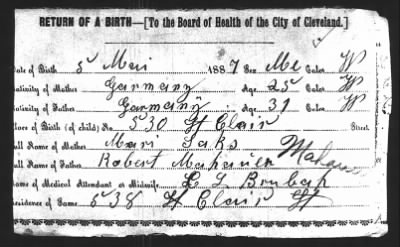 RETURN OF A BIRTH—[To the Board of Health of the City of Cleveland.]
Date of Birth 5 Mai 1887 Sex Me Color W
Nativity of Mother Garmany Age 25 Color W
Nativity of Father Garmany Age 31 Color W
Place of Birth (of child) No. 530 St Clair Street
Full Name of Mother Mari Saks
Full Name of Father Robert
Name of Medical Attendant or Midwife,
Residence of Same 538 St Clair St